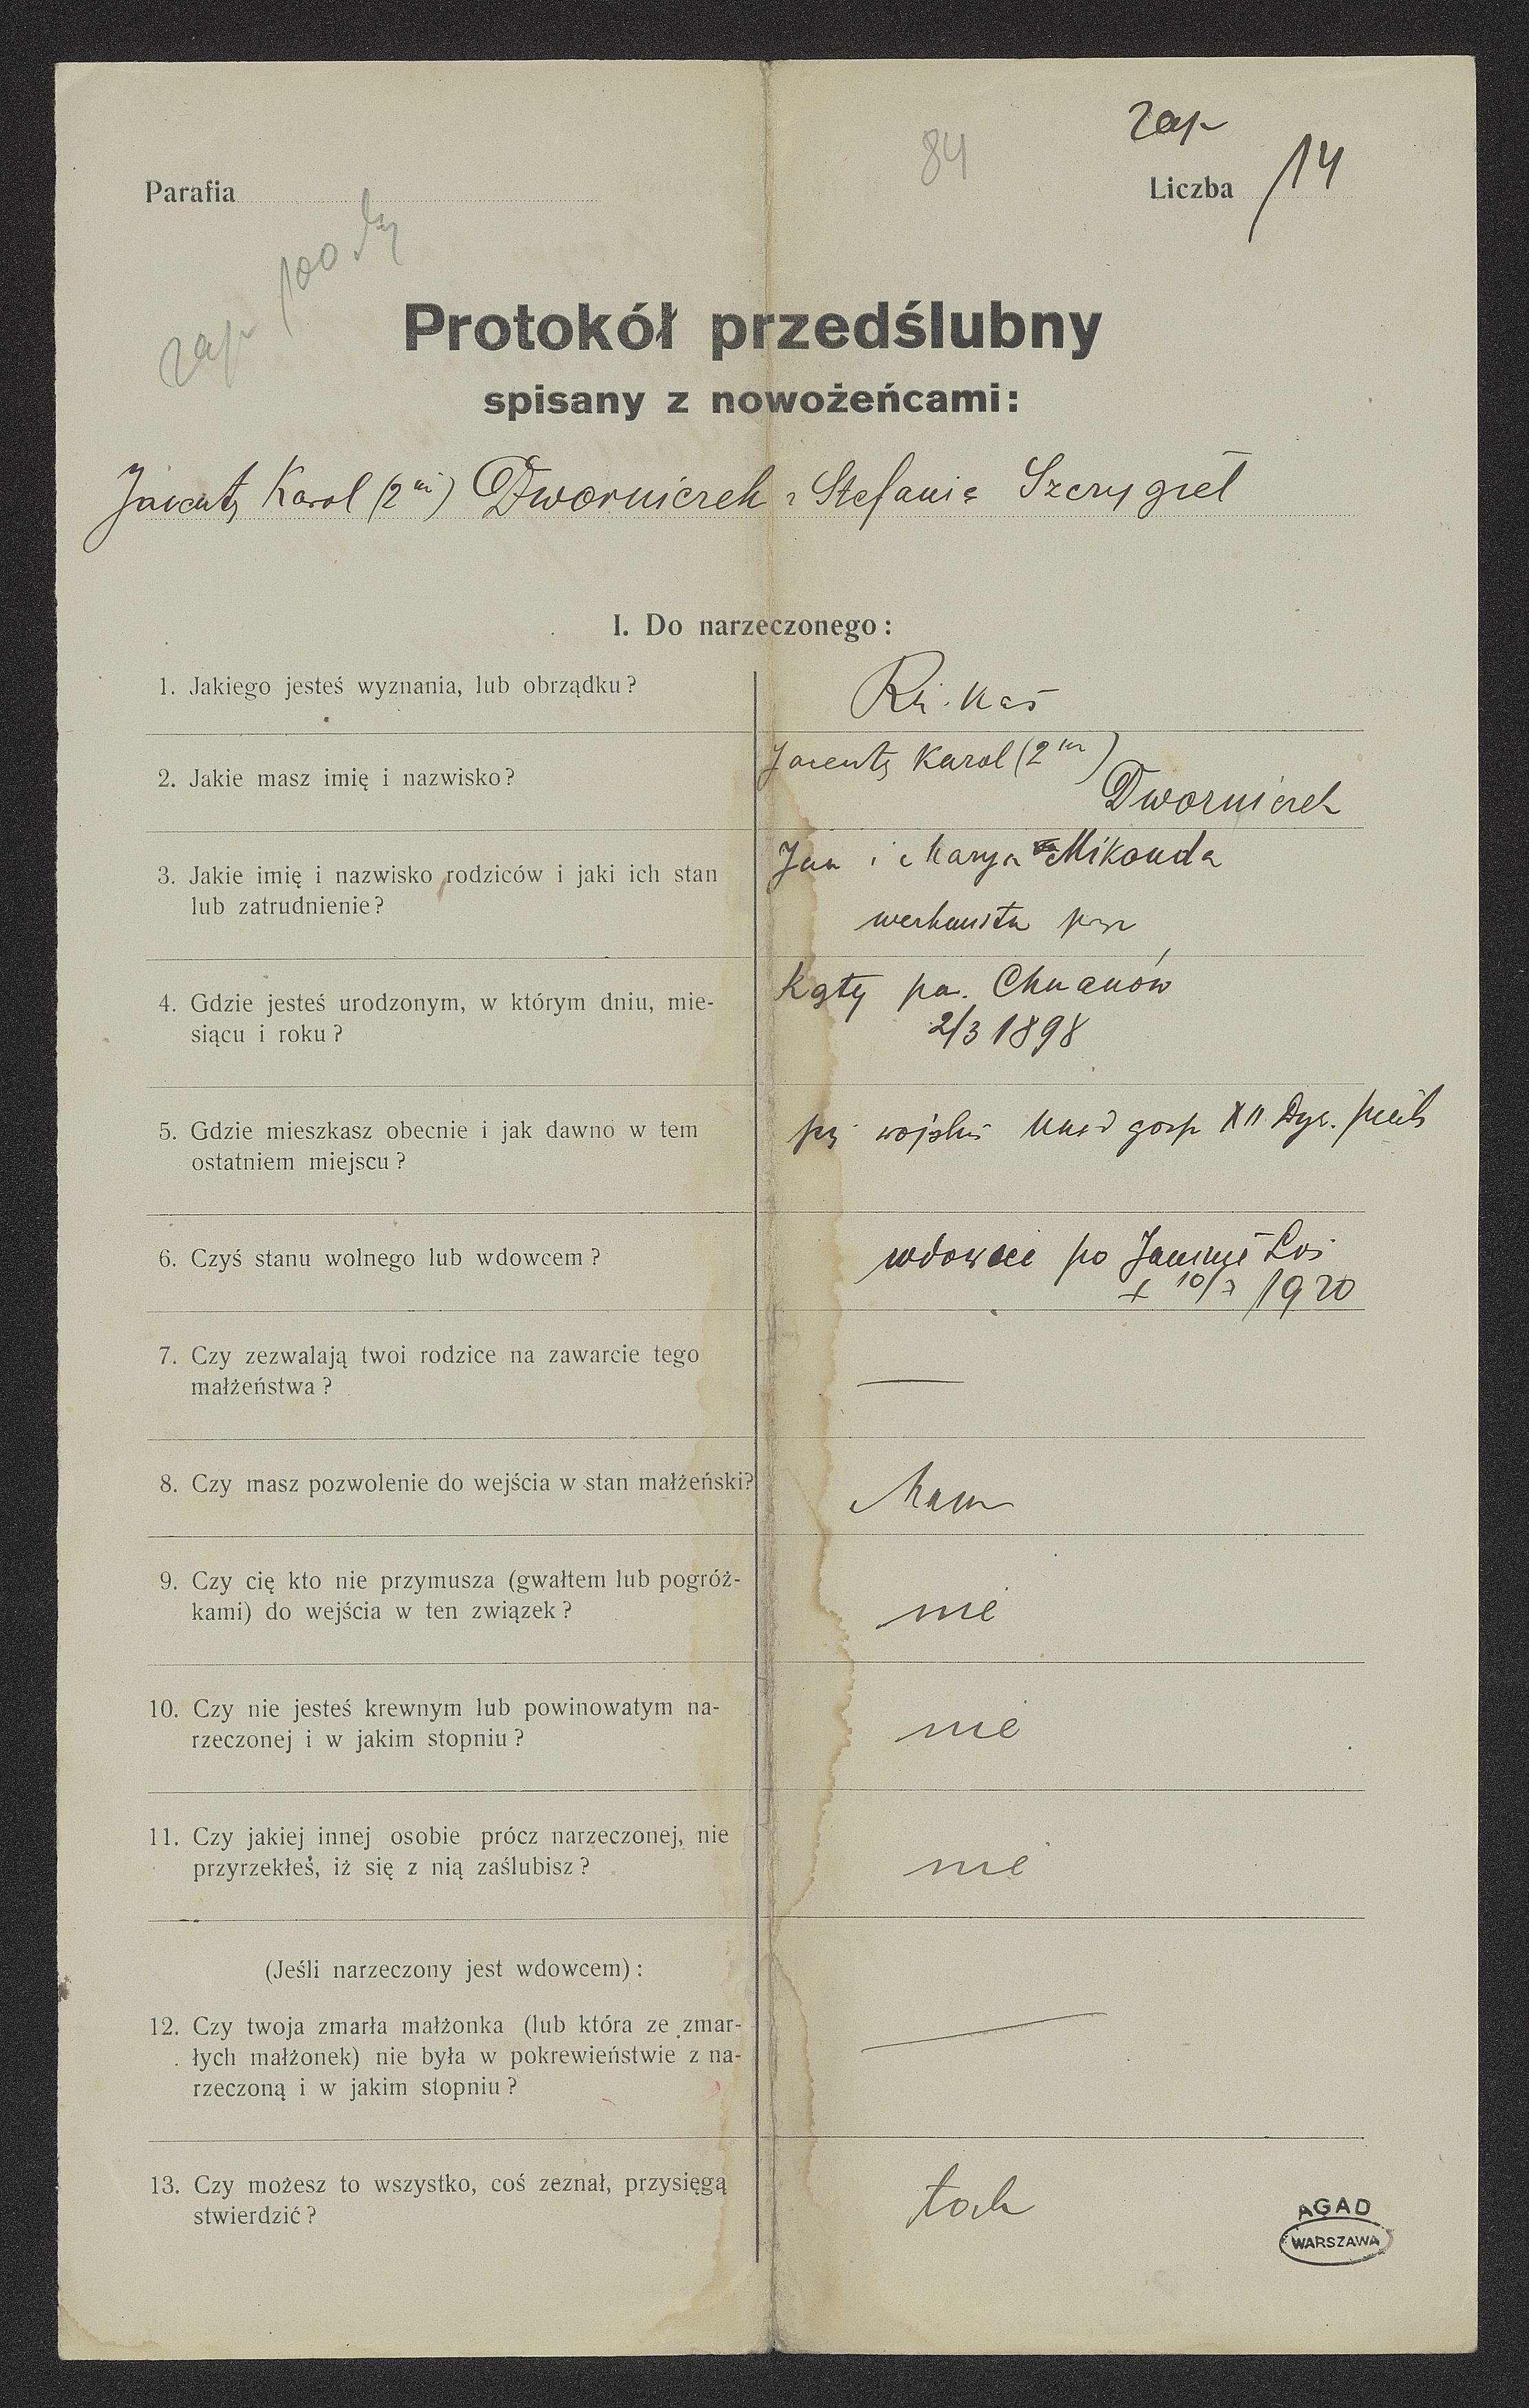 zap
84
Parafia
Liczba /14
zap 100
Protokół przedślubny
spisany z nowożeńcami:
Jacenty Karol (2im) Dworniczek i Stefania Szczygieł
I. Do narzeczonego:
1. Jakiego jesteś wyznania, lub obrządku?
2. Jakie masz imię i nazwisko?
Jacenty Karol (2im)
Dworniczek
3. Jakie imię i nazwisko rodziców i jaki ich stan
Jan i Marya Mikonda
lub zatrudnienie?
4. Gdzie jesteś urodzonym, w którym dniu, mie-
Kąty pa.
siącu i roku?
2/3 1898
5. Gdzie mieszkasz obecnie i jak dawno w tem
przy wojsku gosp XII Dyw.
ostatniem miejscu?
6. Czyś stanu wolnego lub wdowcem?
wdowiec po Janinie Łoś
+ 10/7 1920
7. Czy zezwalają twoi rodzice na zawarcie tego
małżeństwa?
8. Czy masz pozwolenie do wejścia w stan małżeński?
Mam
9. Czy cię kto nie przymusza (gwałtem lub pogróż-
kami) do wejścia w ten związek?
nie
10. Czy nie jesteś krewnym lub powinowatym na-
rzeczonej i w jakim stopniu?
nie
11. Czy jakiej innej osobie prócz narzeczonej, nie
przyrzekłeś, iż się z nią zaślubisz?
nie
(Jeśli narzeczony jest wdowcem):
12. Czy twoja zmarła małżonka (lub która ze zmar-
łych małżonek) nie była w pokrewieństwie z na-
rzeczoną i w jakim stopniu?
13. Czy możesz to wszystko, coś zeznał, przysięgą
stwierdzić?
tak
AGAD
WARSZAWA